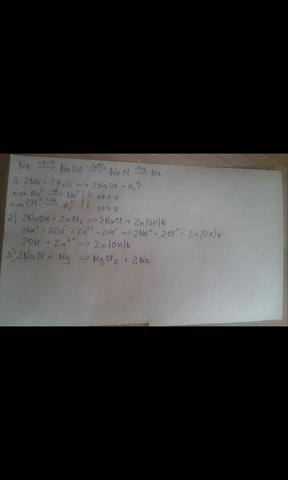 Na +H2O→ NaOH +ZnCl2→ NaCl +Mg→ Na
1) 2Na + 2H2O → 2NaOH + H2↑
Na0 → Na+ | 2
2H+ → H2 0 | 1
2) 2NaOH + ZnCl2 → 2NaCl + Zn(OH)2↓
2Na+ + 2OH- + Zn2+ + 2Cl- → 2Na+ + 2Cl- + Zn(OH)2↓
2OH- + Zn2+ → Zn(OH)2↓
3) 2NaCl + Mg → MgCl2 + 2Na